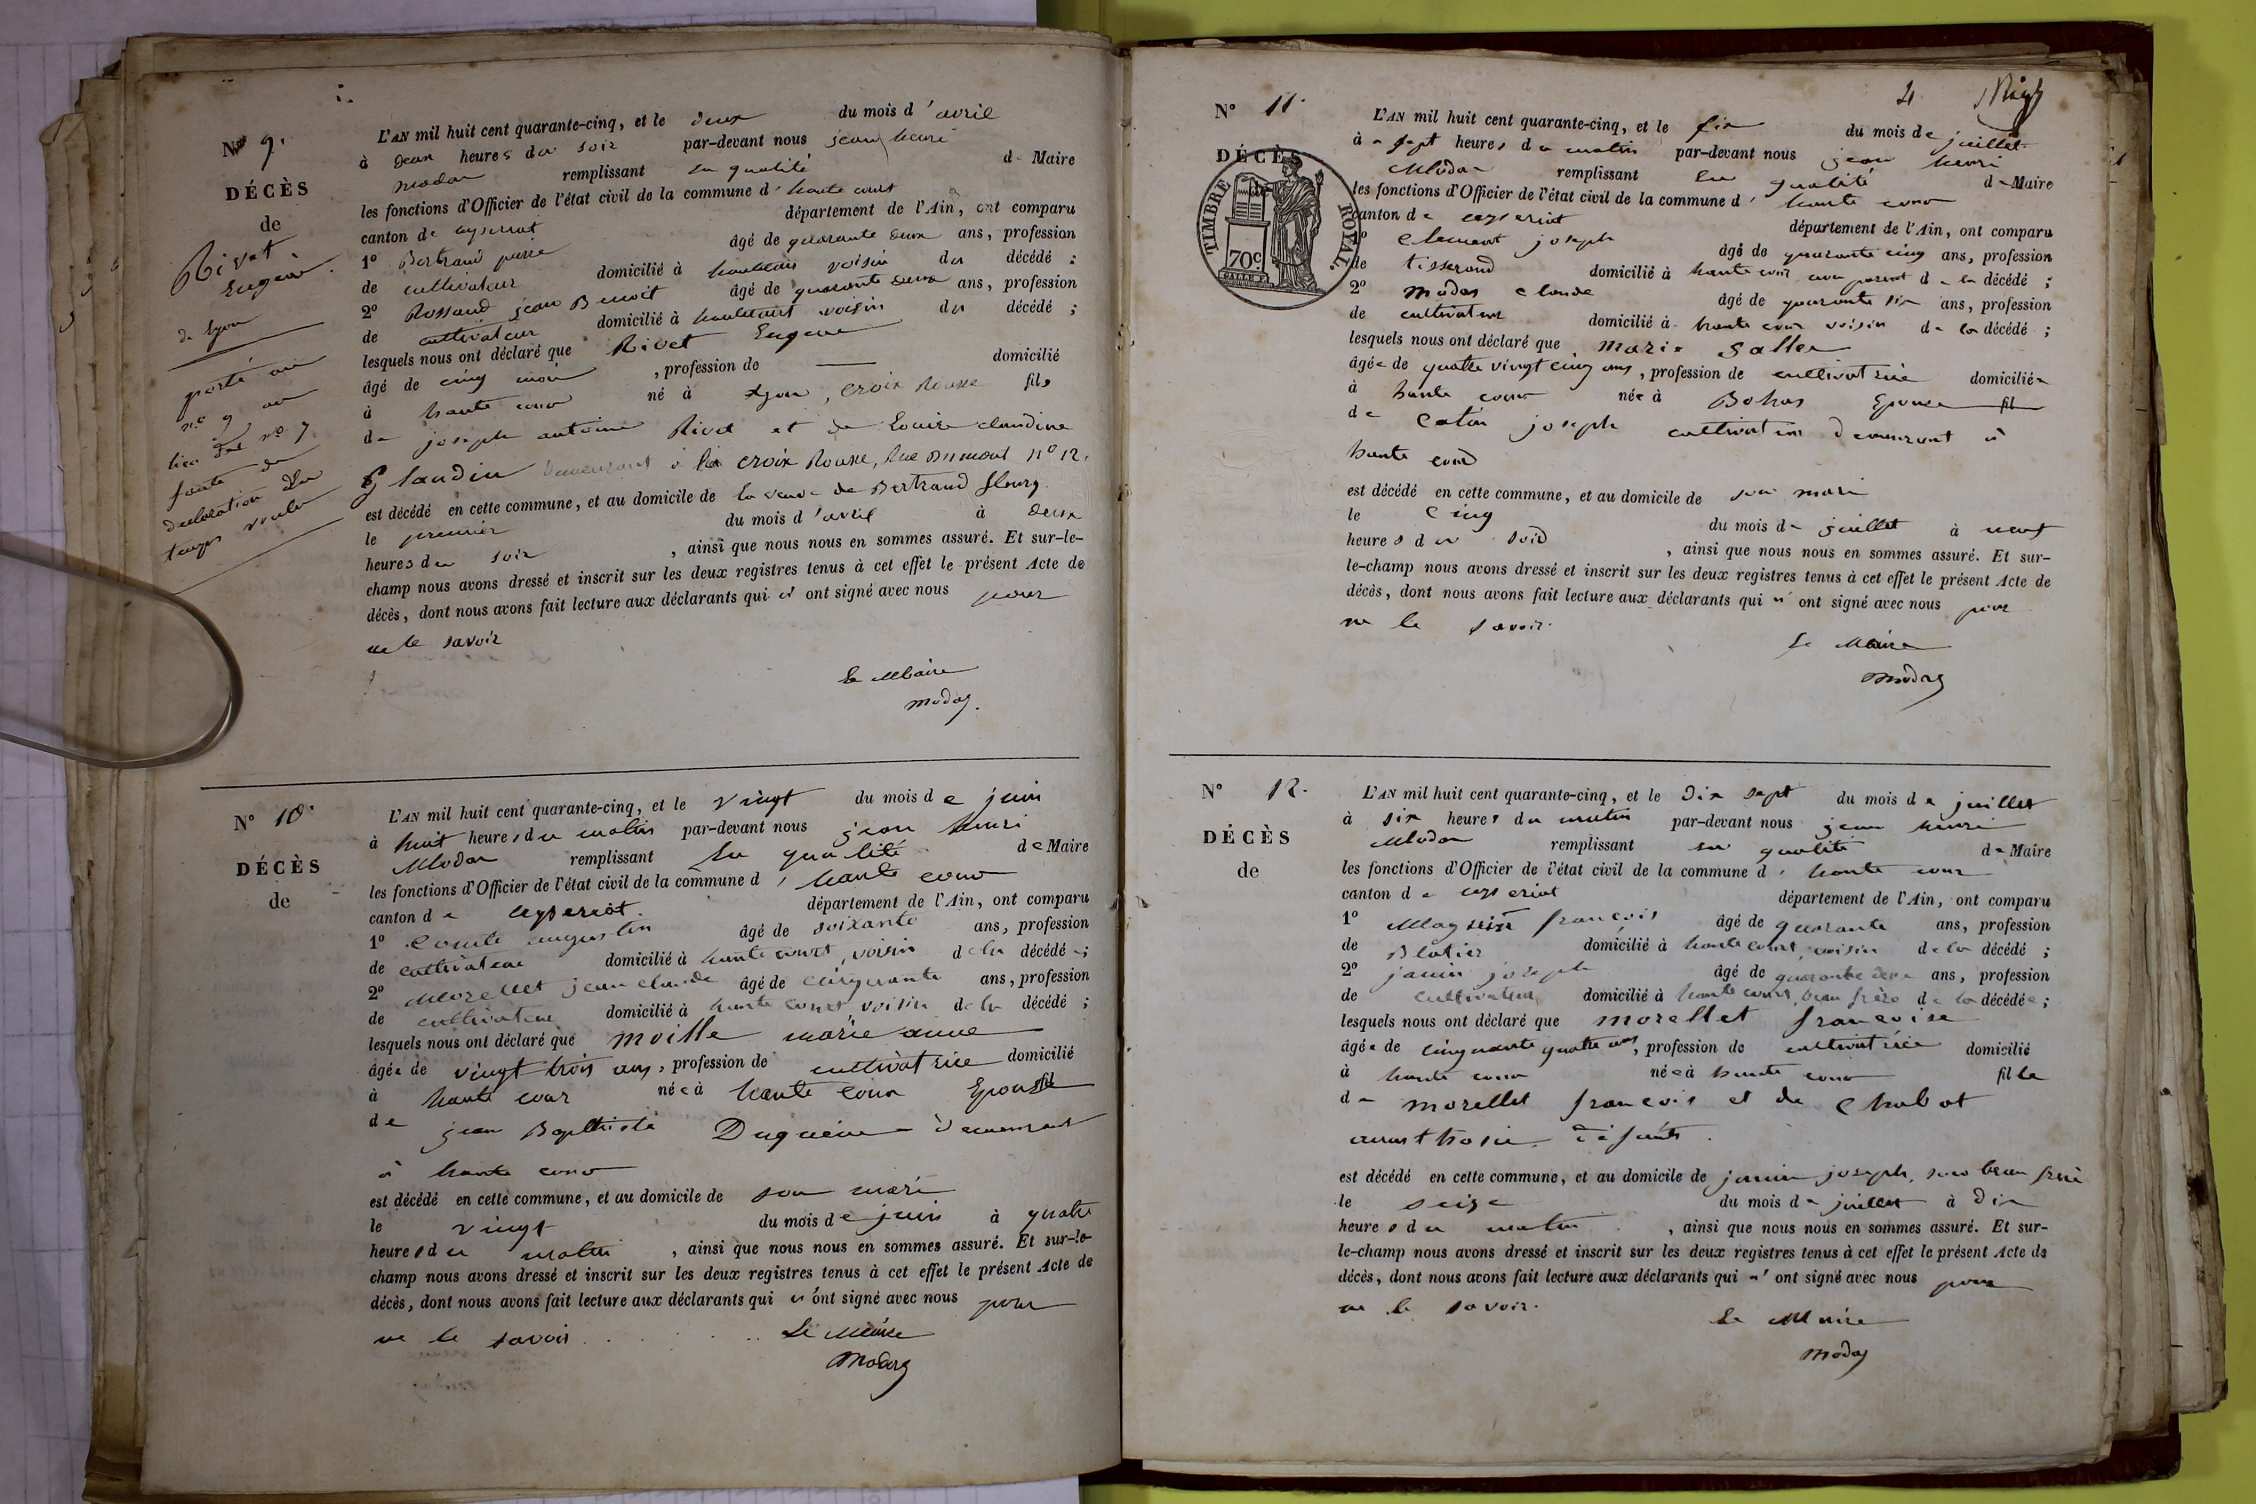 N° 9.
DÉCÈS
de
Rivet
Eugène
de Lyon
porté au
n° 9 au
lieu du n° 7
faute de
declaration du
temps voulu
L'AN mil huit cent quarante-cinq, et le deux du mois d'avril
à deux heures du soir par-devant nous jean henri
modas remplissant en qualité de Maire
les fonctions d'Officier de l'état civil de la commune d'haute cour
canton de ceyseriat département de l'Ain, ont comparu
1° Bertrand pierre âgé de quarante deux ans, profession
de cultivateur domicilié à hautecour voisin du décédé ;
2° Rossand jean Benoit âgé de quarante deux ans, profession
de cultivateur domicilié à hautecourt voisin du décédé ;
lesquels nous ont déclaré que Rivet Eugene
âgé de cinq mois , profession de — domicilié
à haute cour né à Lyon, croix Rousse fils
de joseph antoine Rivet et de Louise claudine
Glandin demeurant à la croix Rousse, Rue Dumont n° 12.
est décédé en cette commune, et au domicile de la veuve de Bertrand fleury
le premier du mois d'avril à deux
heures du soir , ainsi que nous nous en sommes assuré. Et sur-le-
champ nous avons dressé et inscrit sur les deux registres tenus à cet effet le présent Acte de
décès, dont nous avons fait lecture aux déclarants qui n'ont signé avec nous pour
ne le savoir
Le Maire
modas.
N° 10.
DÉCÈS
de
L'AN mil huit cent quarante-cinq, et le vingt du mois de juin
à huit heures du matin par-devant nous jean henri
Modas remplissant en qualité de Maire
les fonctions d'Officier de l'état civil de la commune d'haute cour
canton de ceyseriat. département de l'Ain, ont comparu
1° Comte augustin âgé de soixante ans, profession
de cultivateur domicilié à haute court, voisin de la décédée ;
2° Morellet jean claude âgé de cinquante ans, profession
de cultivateur domicilié à haute court, voisin de la décédé ;
lesquels nous ont déclaré que moille marie anne
âgée de vingt trois ans, profession de cultivatrice domicilié
à haute cour née à haute cour Epouse fil
de jean Baptiste Duguène demeurant
à haute cour
est décédé en cette commune, et au domicile de son mari
le vingt du mois de juin à quatre
heures du matin , ainsi que nous nous en sommes assuré. Et sur-le-
champ nous avons dressé et inscrit sur les deux registres tenus à cet effet le présent Acte de
décès, dont nous avons fait lecture aux déclarants qui n'ont signé avec nous pour
ne le savoir
Le Maire
Modas
4
N° 11.
DÉCÈS
de
TIMBRE ROYAL.
70c
L'AN mil huit cent quarante-cinq, et le six du mois de juillet
à sept heures du matin par-devant nous jean henri
Modas remplissant en qualité de Maire
les fonctions d'Officier de l'état civil de la commune d'haute cour
canton de ceyseriat département de l'Ain, ont comparu
1° Clement joseph âgé de quarante cinq ans, profession
de tisserand domicilié à haute cour non parent de la décédé ;
2° Modas claude âgé de quarante six ans, profession
de cultivateur domicilié à haute cour voisin de la décédé ;
lesquels nous ont déclaré que marie Sallen
âgée de quatre vingt cinq ans, profession de cultivatrice domiciliée
à haute cour née à Bohas Epouse fil
de Catin joseph cultivateur demeurant à
haute cour
est décédé en cette commune, et au domicile de son mari
le cinq du mois de juillet à neuf
heures du soir , ainsi que nous nous en sommes assuré. Et sur-
le-champ nous avons dressé et inscrit sur les deux registres tenus à cet effet le présent Acte de
décès, dont nous avons fait lecture aux déclarants qui n'ont signé avec nous pour
ne le savoir.
Le Maire
Modas
N° 12.
DÉCÈS
de
L'AN mil huit cent quarante-cinq, et le Dix sept du mois de juillet
à six heures du matin par-devant nous jean henri
Modas remplissant en qualité de Maire
les fonctions d'Officier de l'état civil de la commune d'haute cour
canton de ceyseriat département de l'Ain, ont comparu
1° françois âgé de quarante ans, profession
de Blatier domicilié à haute court, voisin de la décédé ;
2° janin joseph âgé de quarante deux ans, profession
de cultivateur domicilié à haute court, beau frère de la décédée ;
lesquels nous ont déclaré que morellet francoise
âgée de cinquante quatre ans, profession de cultivatrice domicilié
à haute cour née à haute cour fille
de morellet francois et de Chabot
défunts.
est décédé en cette commune, et au domicile de janin joseph, son beau frère
le seize du mois de juillet à dix
heures du matin , ainsi que nous nous en sommes assuré. Et sur-
le-champ nous avons dressé et inscrit sur les deux registres tenus à cet effet le présent Acte de
décès, dont nous avons fait lecture aux déclarants qui n'ont signé avec nous pour
ne le savoir.
Le Maire
Modas